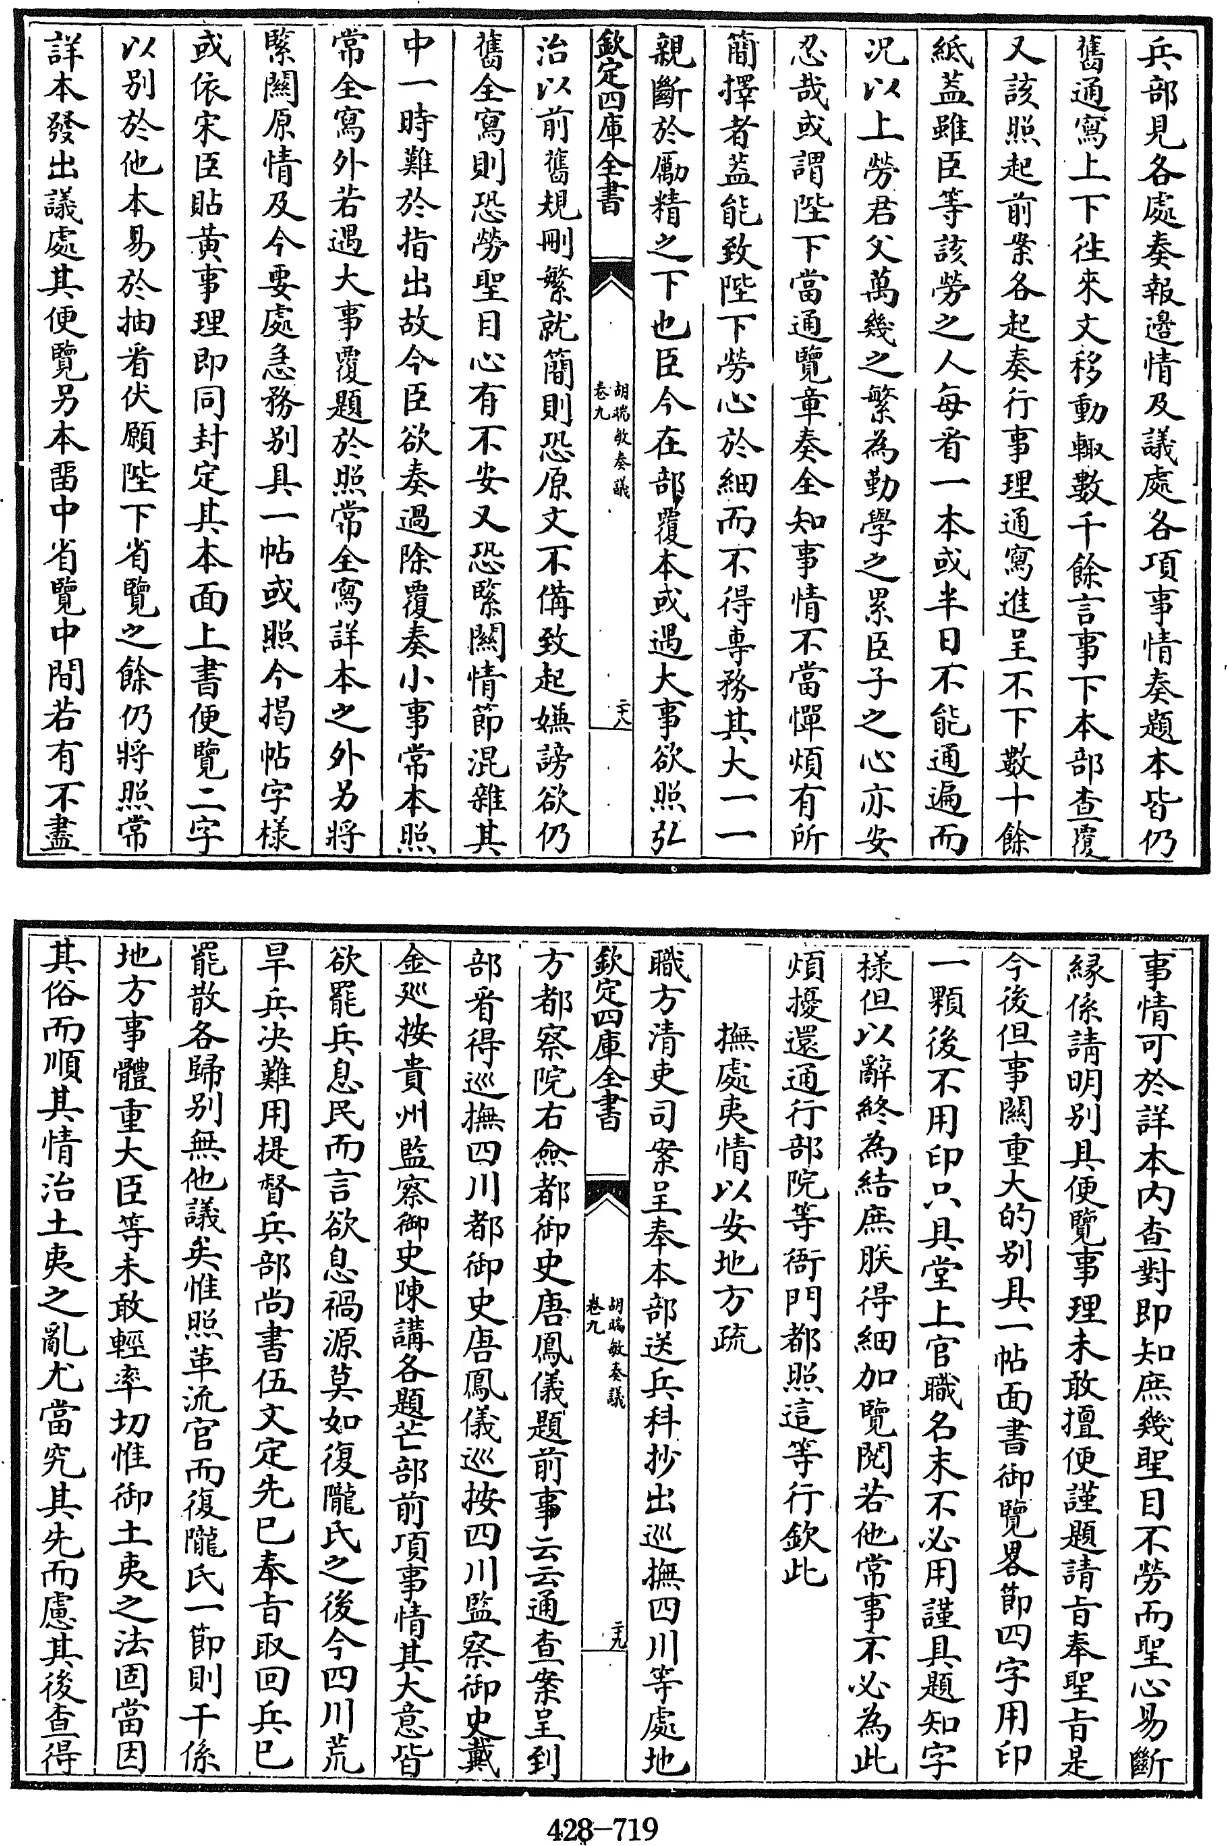 兵部見各處奏報邊情及議處各項事情奏題本皆仍
舊通寫上下往來文移動輙數千餘言事下本部查覆
又該照起前案各起奏行事理通寫進呈不下數十餘
紙蓋雖臣等該勞之人每看一本或半日不能通遍而
况以上勞君父萬幾之繁為勤學之累臣子之心亦安
忍哉或謂陛下當通覽章奏全知事情不當憚煩有所
簡擇者葢能致陛下勞心於細而不得專務其大一一
親斷於勵精之下也臣今在部覆本或遇大事欲照弘
欽定四庫全書
胡端敏奏議
卷九
二十八
治以前舊規刪繁就簡則恐原文不備致起嫌謗欲仍
舊全寫則恐勞聖目心有不安又恐緊關情節混雜其
中一時難於指出故今臣欲奏過除覆奏小事常本照
常全寫外若遇大事覆題於照常全寫詳本之外另將
緊關原情及今要處急務别具一帖或照今揭帖字樣
或依宋臣貼黄事理即同封定其本面上書便覽二字
以别於他本易於抽看伏願陛下省覽之餘仍將照常
詳本發出議處其便覽另本畱中省覽中間若有不盡
事情可於詳本内查對即知庶幾聖目不勞而聖心易斷
縁係請明别具便覽事理未敢擅便謹題請旨奉聖旨是
今後但事關重大的别具一帖面書御覽畧節四字用印
一顆後不用印只具堂上官職名末不必用謹具題知字
樣但以辭終為結庶朕得細加覽閲若他常事不必為此
煩擾還通行部院等衙門都照這等行欽此
撫處夷情以安地方疏
職方清吏司案呈奉本部送兵科抄出巡撫四川等處地
欽定四庫全書
胡端敏奏議
卷九
二十九
方都察院右僉都御史唐鳳儀題前事云云通查案呈到
部看得巡撫四川都御史唐鳳儀巡按四川監察御史戴
金巡按貴州監察御史陳講各題芒部前項事情其大意皆
欲罷兵息民而言欲息禍源莫如復隴氏之後今四川荒
旱兵决難用提督兵部尚書伍文定先已奉旨取回兵已
罷散各歸别無他議矣惟照革流官而復隴氏一節則干係
地方事體重大臣等未敢輕率切惟御土夷之法固當因
其俗而順其情治土夷之亂尤當究其先而慮其後查得
428-719